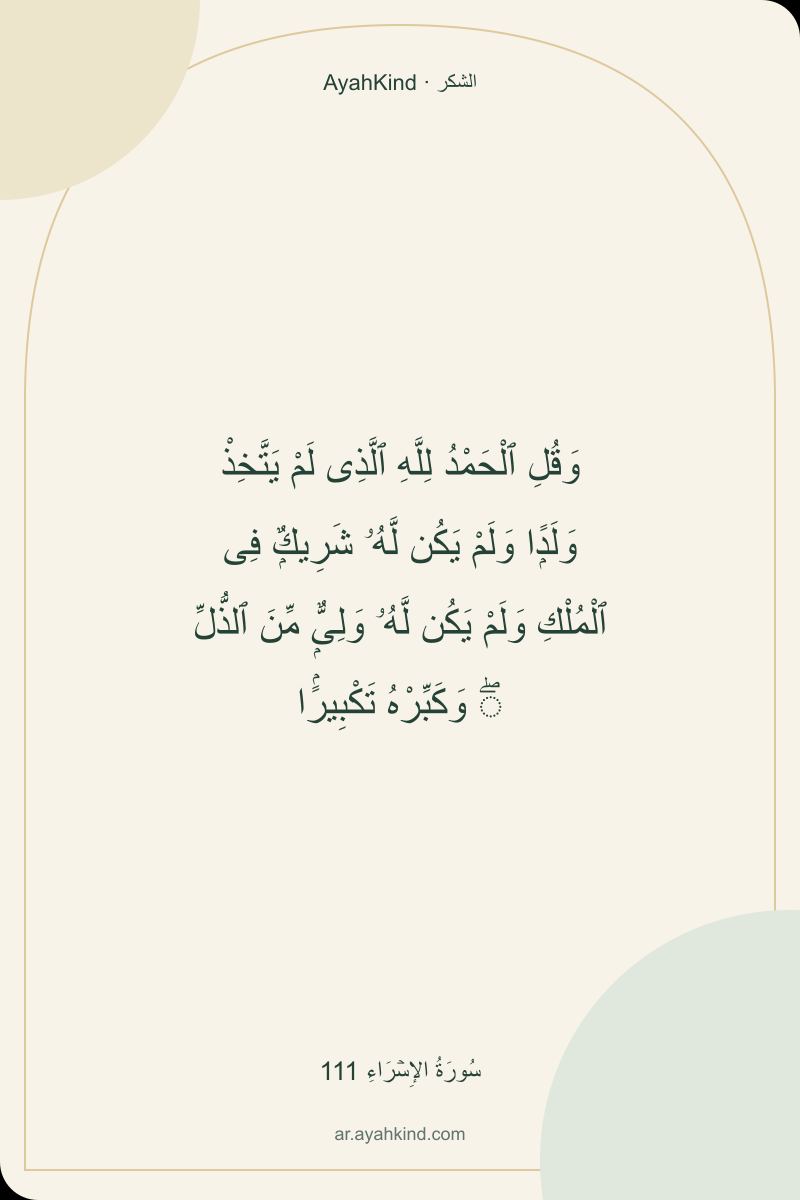 AyahKind · الشكر
وَقُلِ ٱلْحَمْدُ لِلَّهِ ٱلَّذِى لَمْ يَتَّخِذْ
وَلَدًۭا وَلَمْ يَكُن لَّهُۥ شَرِيكٌۭ فِى
ٱلْمُلْكِ وَلَمْ يَكُن لَّهُۥ وَلِىٌّۭ مِّنَ ٱلذُّلِّ
ۖ وَكَبِّرْهُ تَكْبِيرًۢا
سُورَةُ الإِسۡرَاءِ 111
ar.ayahkind.com